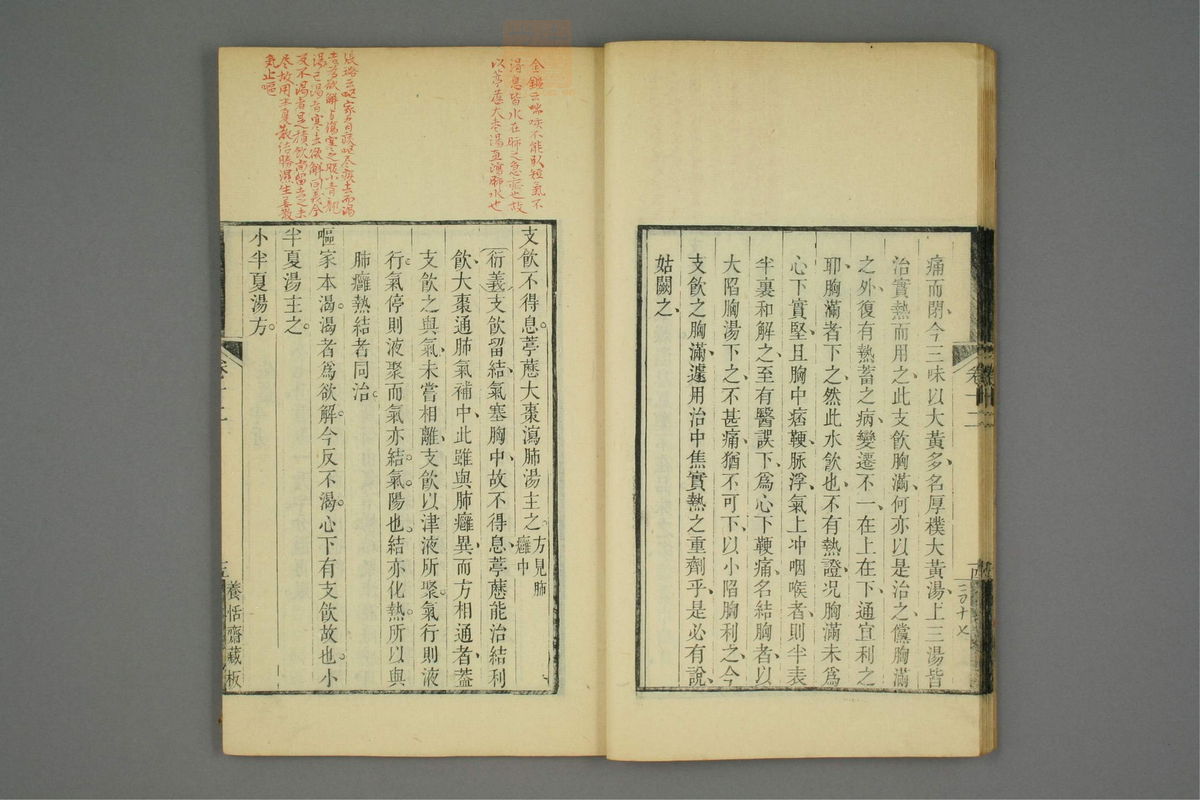 痛而閉今三味以大黃多名厚樸大黃湯上三湯皆
治實熱而用之此支飲胸滿何亦以是治之儻胸滿
之外復有熱蓄之病變遷不一在上在下通宜利之
耶胸滿者下之然此水飲也不有熱證况胸滿未爲
心下實堅且胸中痞鞕脉浮氣上冲咽喉者則半表
半裏和解之至有醫誤下爲心下鞕痛名結胸者以
大陷胸湯下之不甚痛猶不可下以小陷胸利之今
支飲之胸滿遽用治中焦實熱之重劑乎是必有說
姑闕之
卷十二
金鑑云喘咳不能臥短氣不
得息皆水在肺之急症也故
以葶藶大枣湯直瀉肺水也
支飲不得息葶藶大棗瀉肺湯主之方見肺
癰中
衍義支飲留結氣塞胸中故不得息葶藶能治結利
飲大棗通肺氣補中此雖與肺癰異而方相通者葢
支飲之與氣未嘗相離支飲以津液所聚氣行則液
行氣停則液聚而氣亦結氣陽也結亦化熱所以與
肺癰熱結者同治
嘔家本渴渴者爲欲解今反不渴心下有支飲故也小
半夏湯主之
小半夏湯方
氣止嘔
卷十二
養恬齋藏板